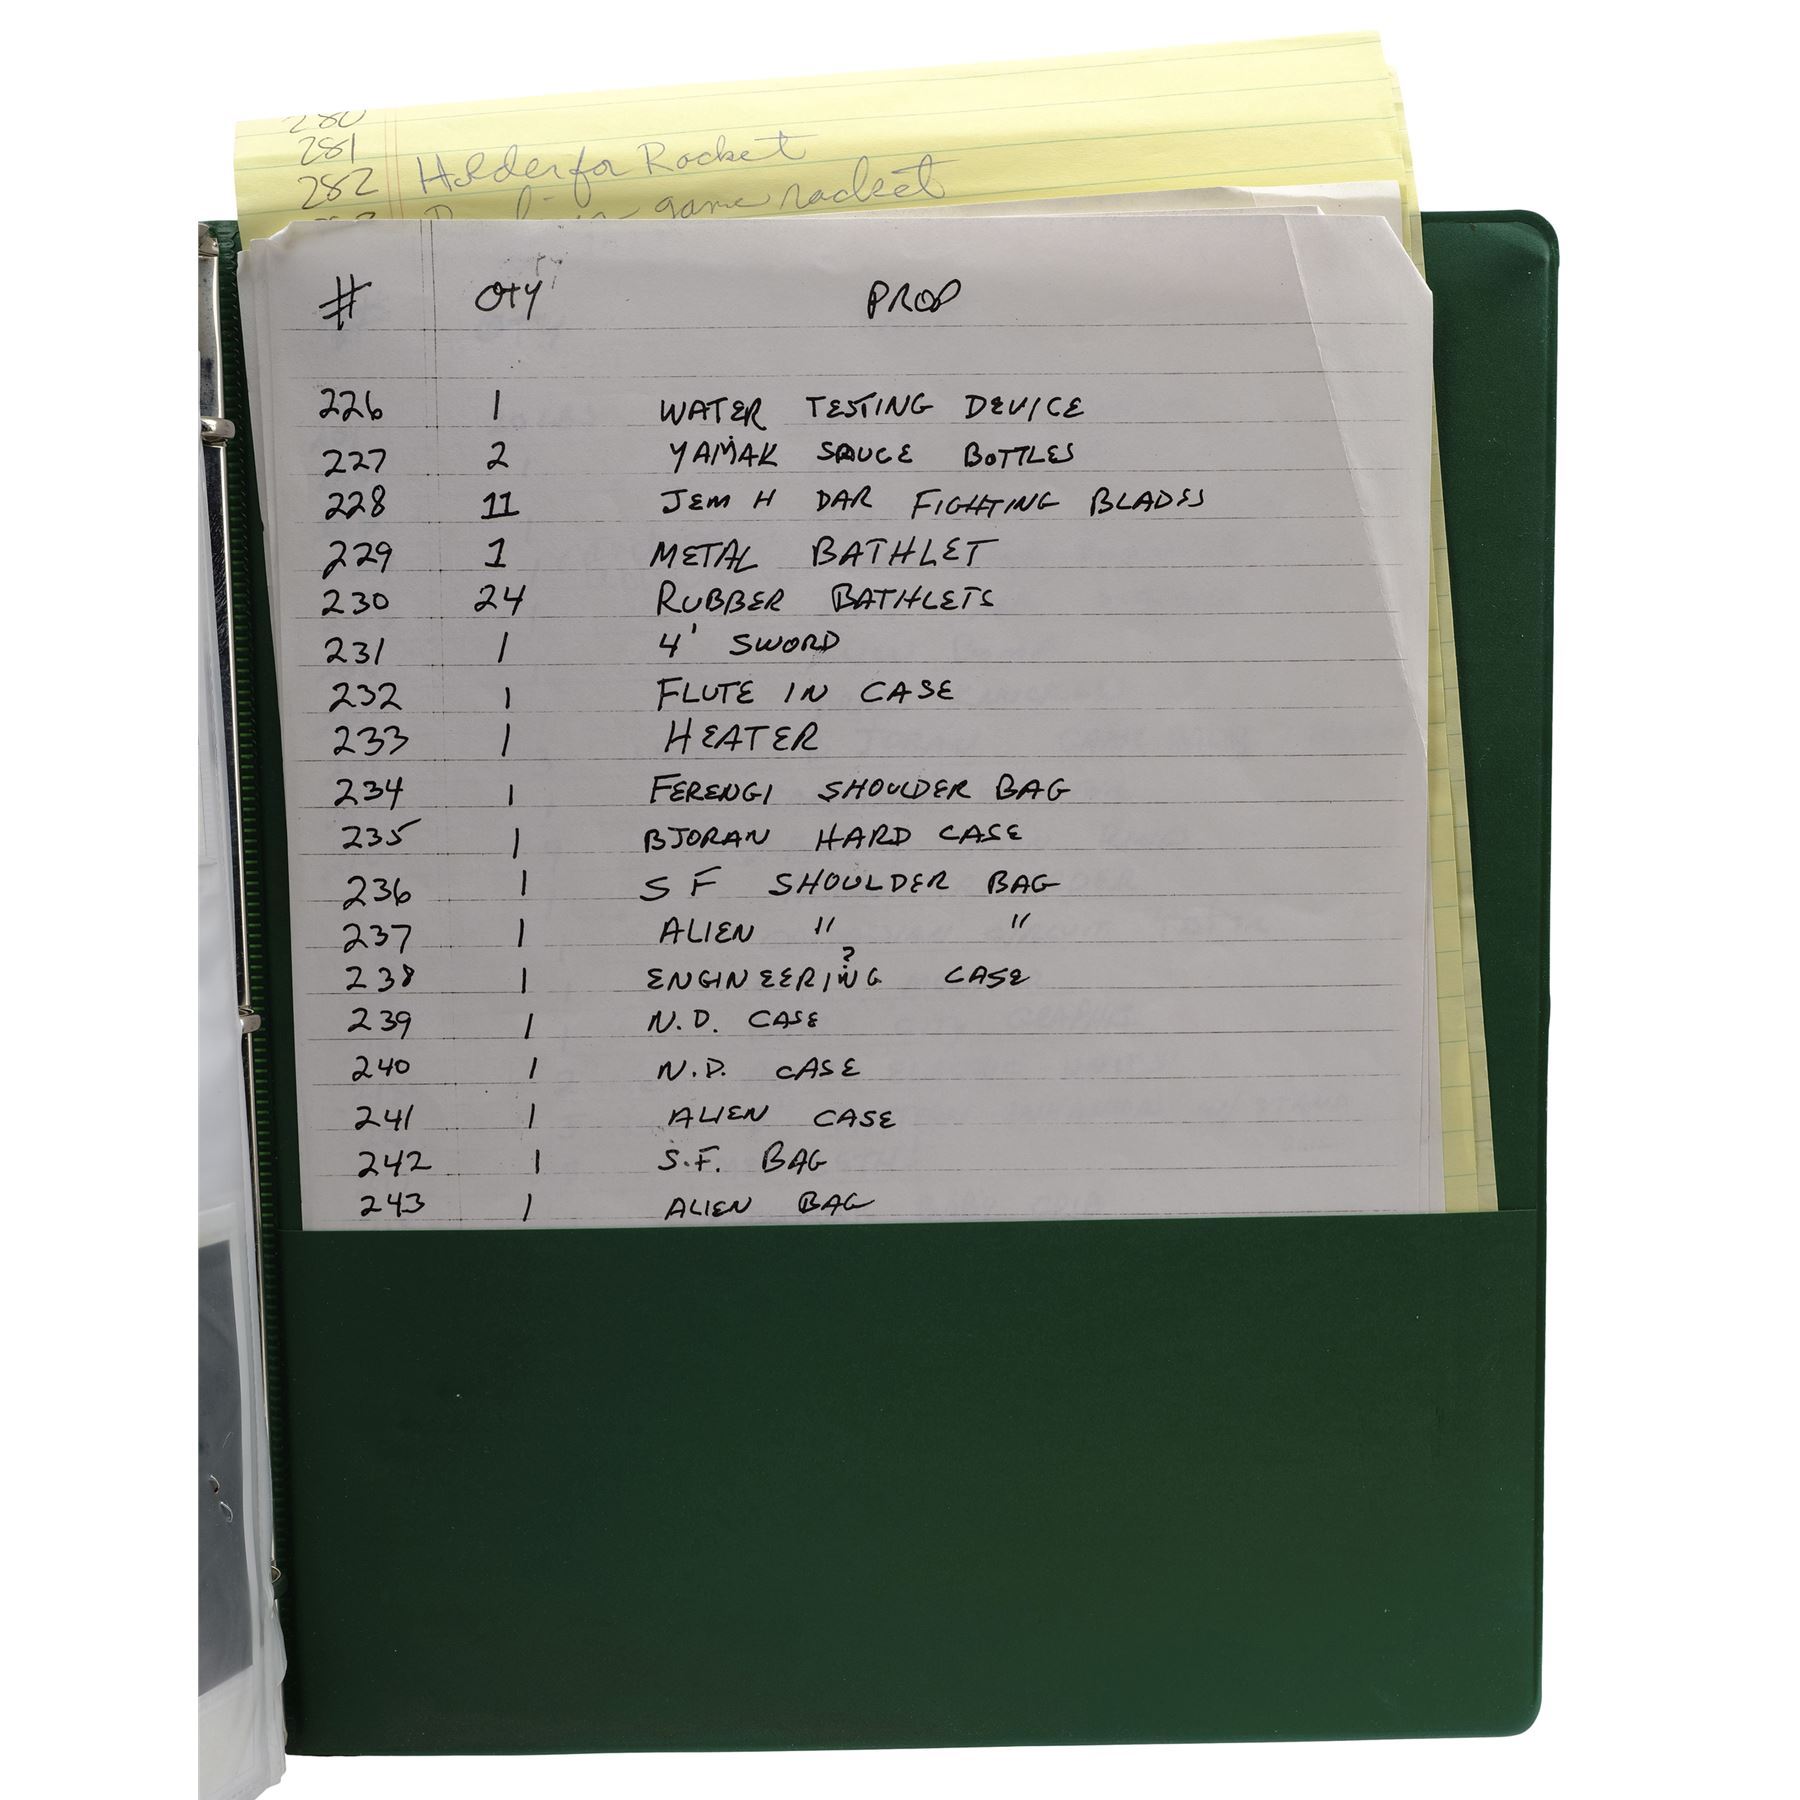 280
281
282 Holder for Racket
game racket
# QTY PROP
226 1 WATER TESTING DEVICE
227 2 YAMAK SAUCE BOTTLES
228 11 JEM H DAR FIGHTING BLADES
229 1 METAL BATHLET
230 24 RUBBER BATHLETS
231 1 4' SWORD
232 1 FLUTE IN CASE
233 1 HEATER
234 1 FERENGI SHOULDER BAG
235 1 BJORAN HARD CASE
236 1 S F SHOULDER BAG
237 1 ALIEN " "
238 1 ENGINEERING ? CASE
239 1 N.D. CASE
240 1 N.D. CASE
241 1 ALIEN CASE
242 1 S.F. BAG
243 1 ALIEN BAG